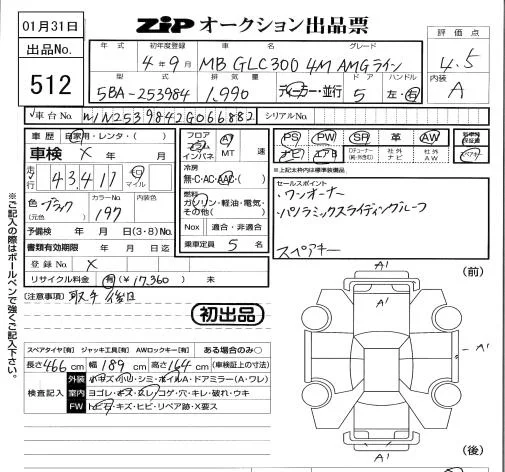 01月31日
ZiP オークション出品票
出品No.
512
年式 初年度登録 車名 グレード
4年9月 MB GLC300 4M AMGライン
型式 排気量 ドア ハンドル
5BA-253984 1,990 ディーラー・並行 5 左・右
評価点
4.5
内装
A
車台No. W1N2539842G066882 シリアルNo.
車歴 自家用・レンタ・( )
車検 X 年 月
走行 43,417 キロ マイル
色 ブラック (元色) カラーNo. 197 内装色
予備検 年 月 日(3・8)No.
書類有効期限 年 月 日迄
登録No. X
リサイクル料金 有(¥17,360) 未
フロア コラム インパネ AT MT 速
冷房 無・C・AC・AAC・( )
燃料 ガソリン・軽油・電気・その他( )
Nox 適合・非適合
乗車定員 5 名
PS PW SR 革 AW
ナビ エアB 社外ナビ 社外AW
新車時保証書
※上記太枠内は標準装備品
セールスポイント
・ワンオーナー
・パノラミックスライディングルーフ
スペアキー
(注意事項) 取手 後日
初出品
スペアタイヤ[有] ジャッキ工具[有] AWロックキー[有] ある場合のみ○
長さ 466 cm 幅 189 cm 高さ 164 cm (車検証上の寸法)
検査記入
外装 小キズ・小凹・シミ・ホイルA・ドアミラー(A・ワレ)
室内 ヨゴレ・キズ・スレ・コゲ・穴・キレ・破れ・ウキ
FW トビ石・キズ・ヒビ・リペア跡・X要ス
※ご記入の際はボールペンで強くご記入下さい。
(前)
A'
A'
A'
A'
(後)